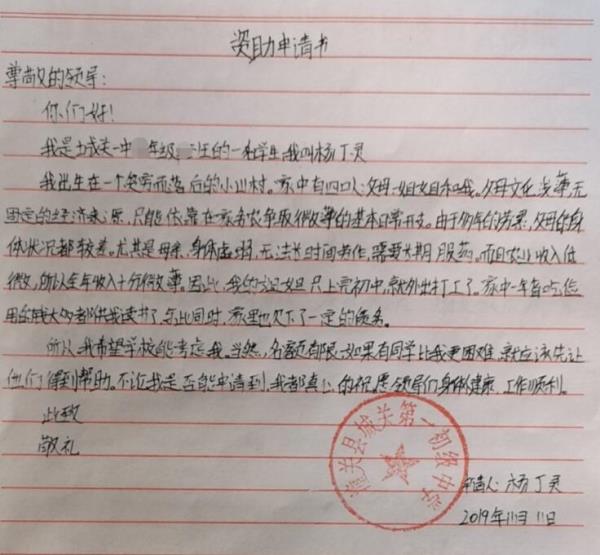 资助申请书
尊敬的领导：
你们好！
我是城关一中 年级 班的一名学生，我叫杨丁灵
我出生在一个贫穷而落后的小山村。家中有四口人：父母、姐姐和我。父母文化浅薄，无
固定的经济来源，只能依靠在家务农争取微薄的基本日常开支。由于多年的劳累，父母的身
体状况都较差。尤其是母亲，身体虚弱，无法长时间劳作，需要长期服药。而且农业收入低
微，所以全年收入十分微薄。因此，我的姐姐只上完初中，就外出打工了。家中一年省吃俭
用的钱大多都供我读书了，与此同时，家里也欠下了一定的债务。
所以，我希望学校能考虑我。当然，名额有限，如果有同学比我更困难，就应该先让
他们得到帮助。不论我是否能申请到，我都真心的祝愿领导们身体健康，工作顺利。
此致
敬礼
潼关县城关第一初级中学
申请人：杨丁灵
2019年11月11日